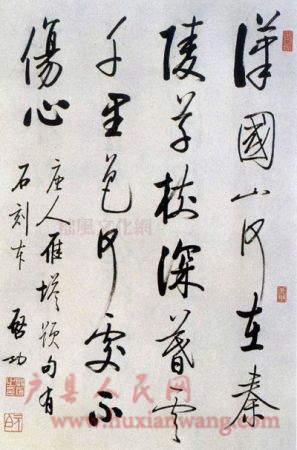 漢國山河在秦
陵草樹深暮雲
千里色何處不
傷心
唐人雁塔題句有
石刻本
啓功
風文化網
户县人民网
www.huxianwang.com